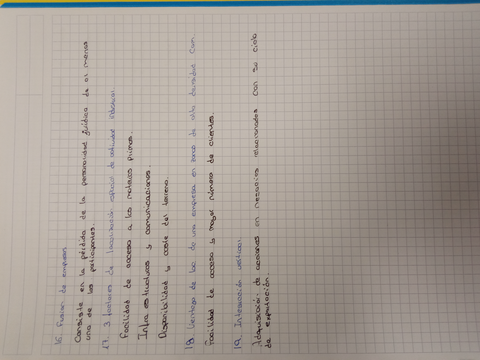 16 Fusion de empresas
Consiste en la pérdida de la personalidad jurídica de al menos
uno de los participantes.
17. 3 factores de localización de actividad industrial
Facilidad de acceso a las materias primas.
Infraestructuras y comunicaciones.
Disponibilidad y coste del terreno.
18 Ventaja de loc de una empresa en zonas de alta densidad com.
Facilidad de acceso a mayor número de clientes.
19. Integración vertical
Adquisición de acciones en negocios relacionados con su ciclo
de explotación.